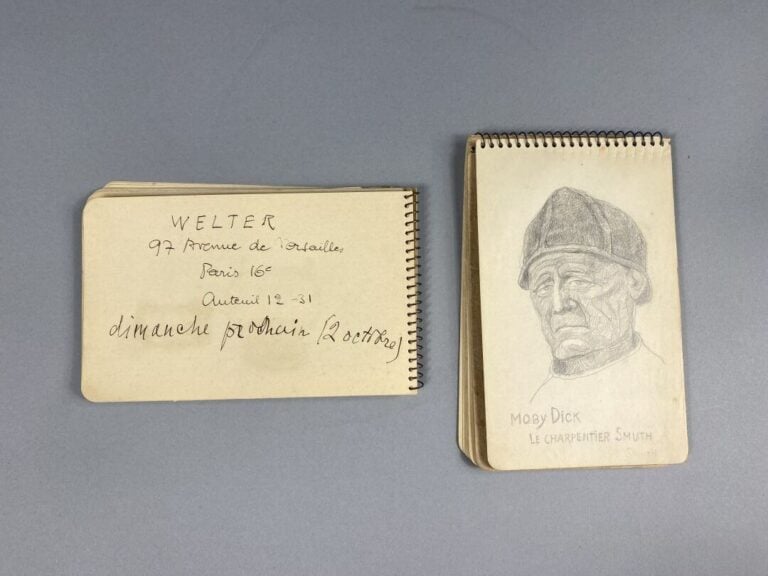 WELTER
97 Avenue de Versailles
Paris 16e
Auteuil 12-31
dimanche prochain (2 octobre)
MOBY DICK
LE CHARPENTIER SMUTH